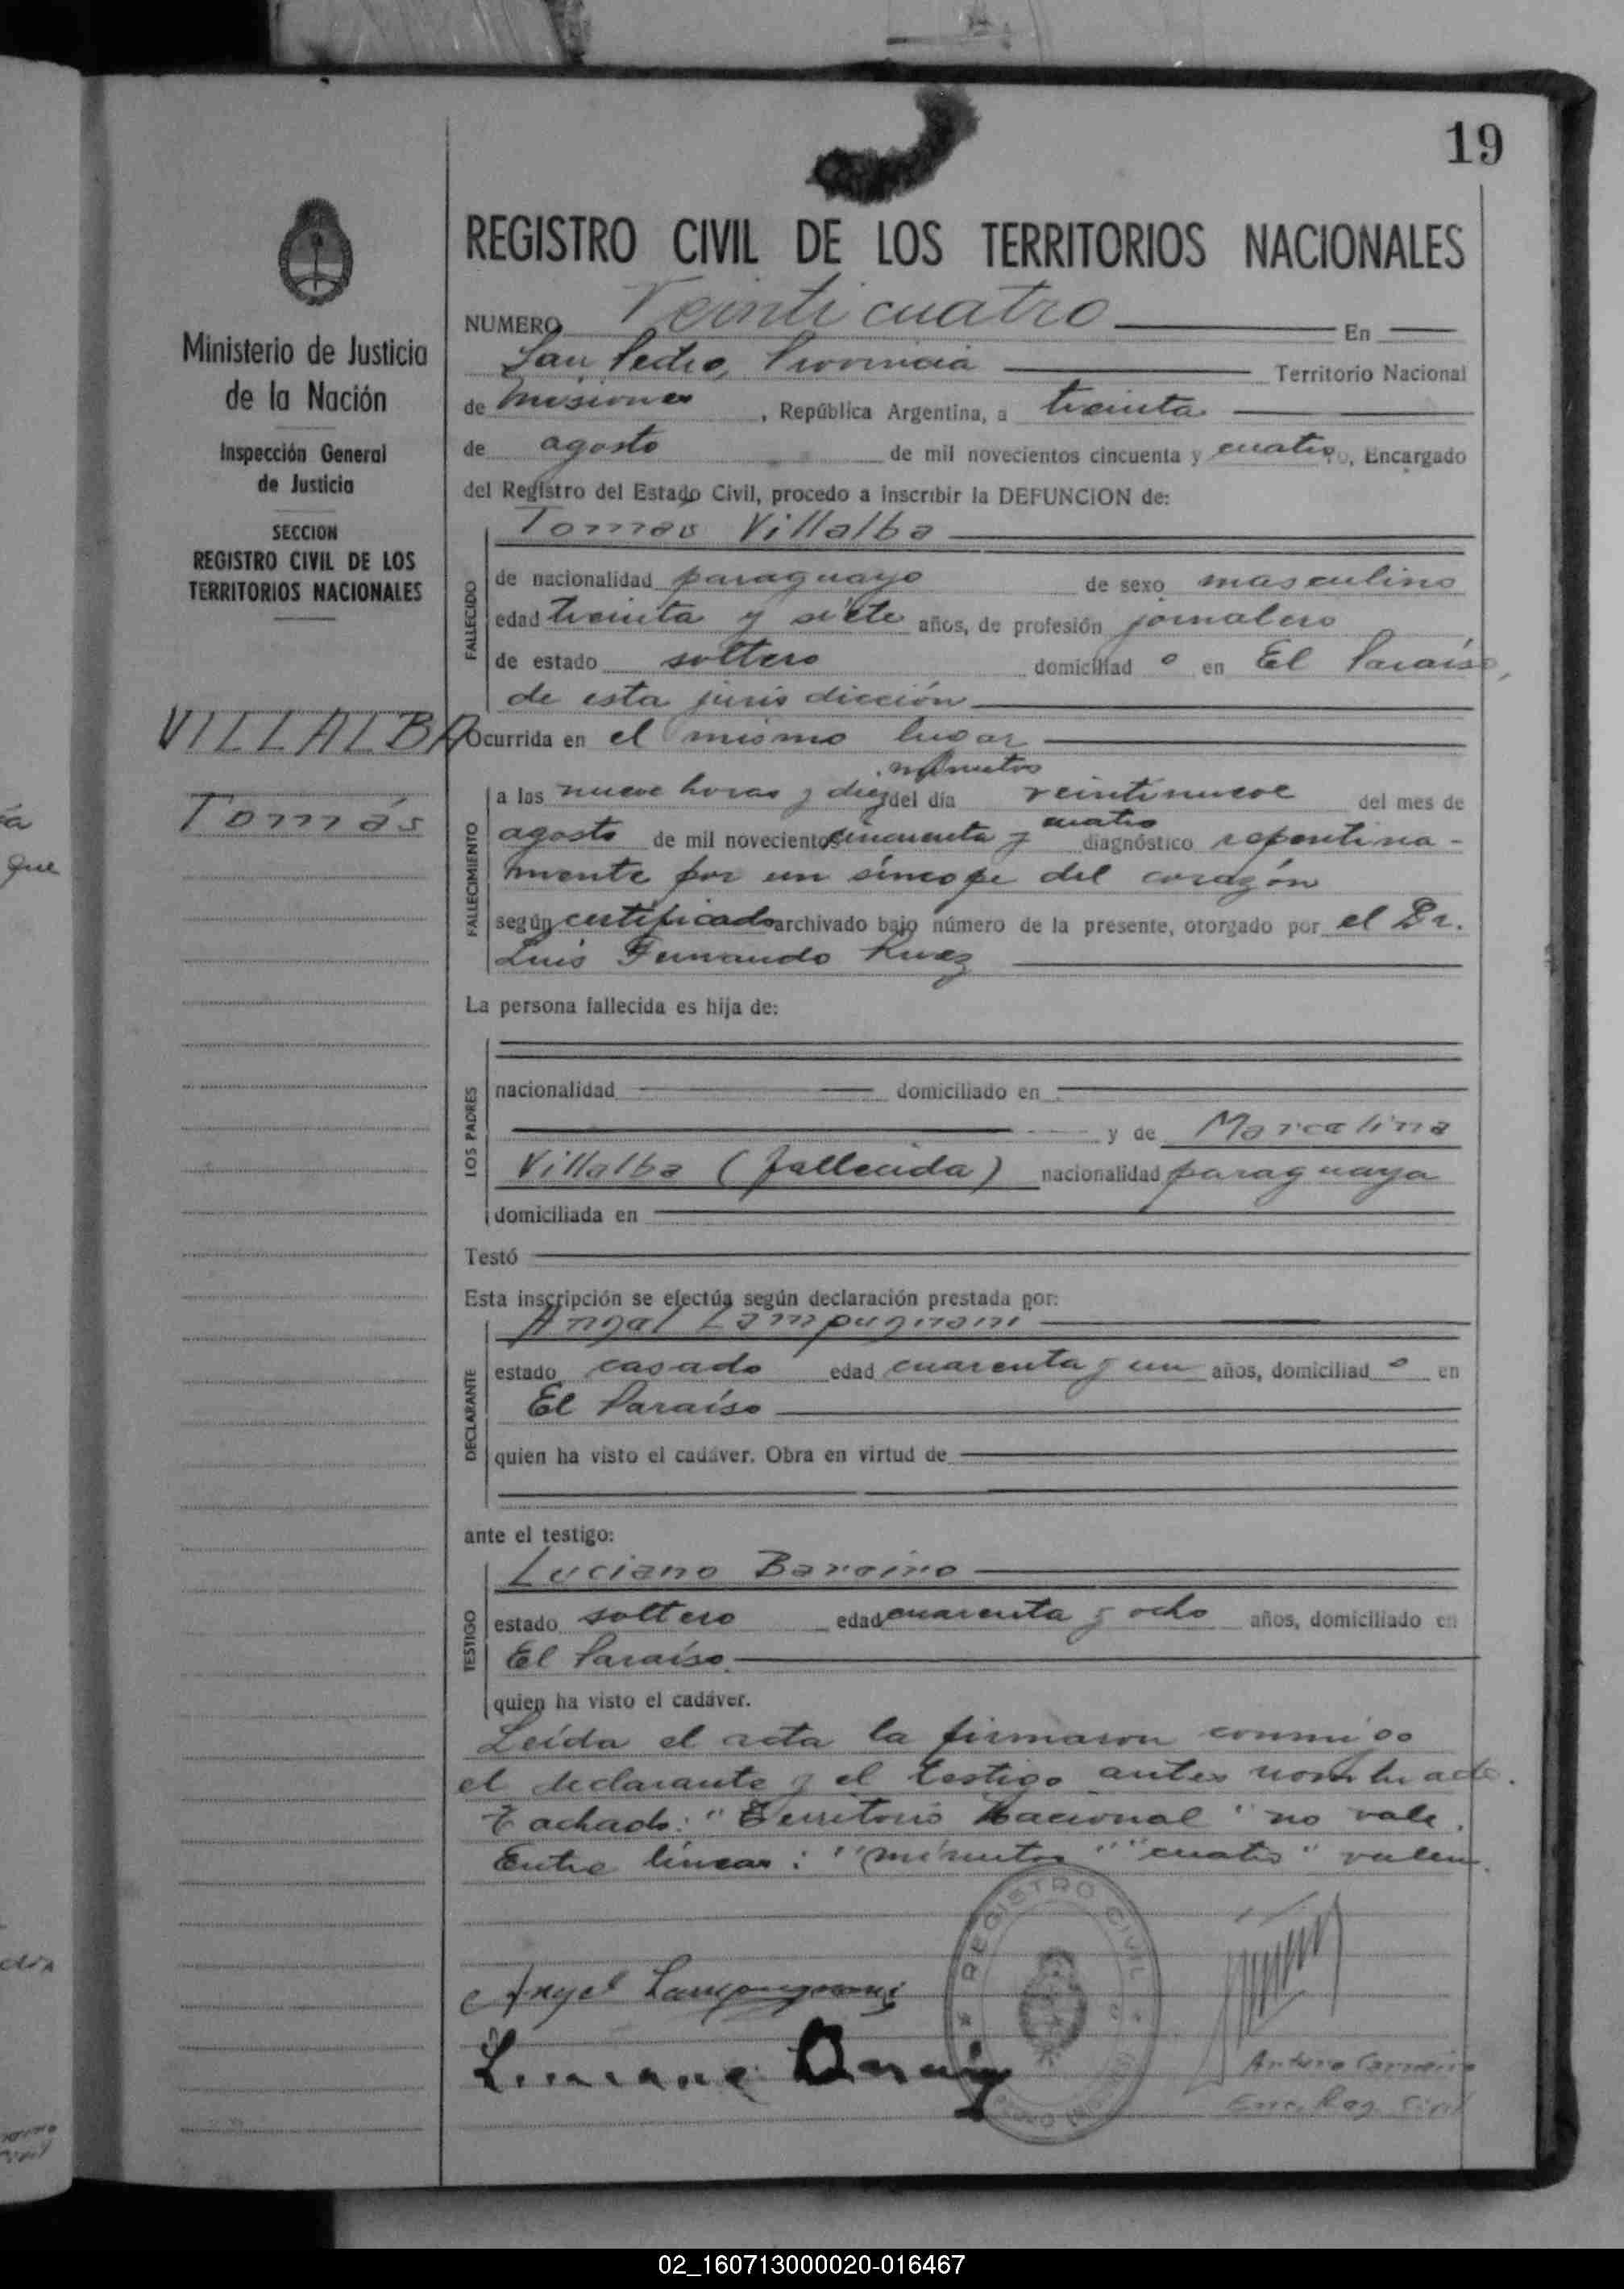 19
REGISTRO CIVIL DE LOS TERRITORIOS NACIONALES
Ministerio de Justicia
de la Nación
Inspección General
de Justicia
SECCION
REGISTRO CIVIL DE LOS
TERRITORIOS NACIONALES
VILLALBA
Tomás
NUMERO Veinticuatro En
San Pedro, Provincia Territorio Nacional
de Misiones, República Argentina, a treinta
de agosto de mil novecientos cincuenta y cuatro, Encargado
del Registro del Estado Civil, procedo a inscribir la DEFUNCION de:
FALLECIDO
Tomás Villalba
de nacionalidad paraguayo de sexo masculino
edad treinta y siete años, de profesión jornalero
de estado soltero domiciliad o en El Paraíso,
de esta jurisdicción
Ocurrida en el mismo lugar
FALLECIMIENTO
minutos
a las nueve horas y diez del día veintinueve del mes de
cuatro
agosto de mil novecientos cincuenta y diagnóstico repentina-
mente por un síncope del corazón
según certificado archivado bajo número de la presente, otorgado por el Dr.
Luis Fernando
La persona fallecida es hija de:
LOS PADRES
nacionalidad domiciliado en
y de Marcelina
Villalba (fallecida) nacionalidad paraguaya
domiciliada en
Testó
Esta inscripción se efectúa según declaración prestada por:
DECLARANTE
Angel Lampugnani
estado casado edad cuarenta y un años, domiciliad o en
El Paraíso
quien ha visto el cadáver. Obra en virtud de
ante el testigo:
TESTIGO
Luciano Bareiro
estado soltero edad cuarenta y ocho años, domiciliado en
El Paraíso
quien ha visto el cadáver.
Leída el acta la firmaron conmigo
el declarante y el testigo antes nombrado.
Tachado: "Territorio Nacional" no vale.
Entre líneas: "minutos" "cuatro" valen.
REGISTRO CIVIL
Angel Lampugnani
Arturo Carneiro
Enc. Reg. Civil
que
02_160713000020-016467